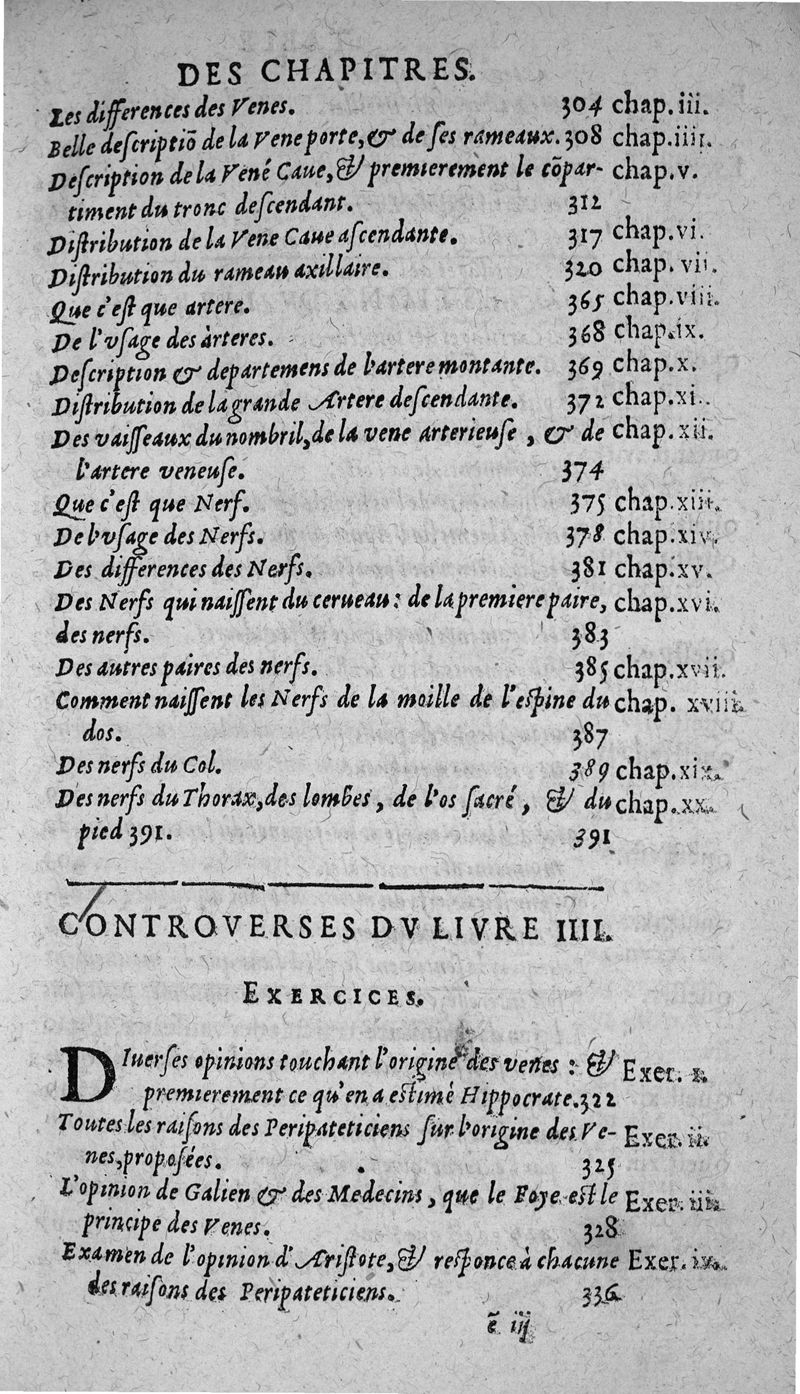 DES CHAPITRES.
Les differences des Venes. 304 chap.iii.
Belle descriptiõ de la Vene porte,& de ses rameaux.308 chap.iiii.
Description de la Vené Caue,& premierement le cõpar- chap.v.
timent du tronc descendant. 312
Distribution de la Vene Caue ascendante. 317 chap.vi.
Distribution du rameau axillaire. 320 chap.vii.
Que c'est que artere. 365 chap.viii.
De l'vsage des àrteres. 368 chap.ix.
Description & departemens de l'artere montante. 369 chap.x.
Distribution de la grande Artere descendante. 372 chap.xi.
Des vaisseaux du nombril,de la vene arterieuse , & de chap.xii.
l'artere veneuse. 374
Que c'est que Nerf. 375 chap.xiii.
De l'vsage des Nerfs. 378 chap.xiv.
Des differences des Nerfs. 381 chap.xv.
Des Nerfs qui naissent du cerueau : de la premiere paire, chap.xvi.
des nerfs. 383
Des autres paires des nerfs. 385 chap.xvii.
Comment naissent les Nerfs de la moille de l'espine du chap. xviii.
dos. 387
Des nerfs du Col. 389 chap.xix.
Des nerfs du Thorax,des lombes , de l'os sacré , & du chap.xx.
pied 391. 391
CONTROVERSES DV LIVRE IIII.
EXERCICES.
DIuerses opinions touchant l'origine des venes : & Exer. i.
premierement ce qu'en a estimé Hippocrate.322
Toutes les raisons des Peripateticiens sur l'origine des Ve- Exer. ii.
nes,proposées. 325
L'opinion de Galien & des Medecins , que le Foye est le Exer. iii.
principe des Venes. 328
Examen de l'opinion d'Aristote,& responce à chacune Exer. iv.
des raisons des Peripateticiens. 336
ẽ iij